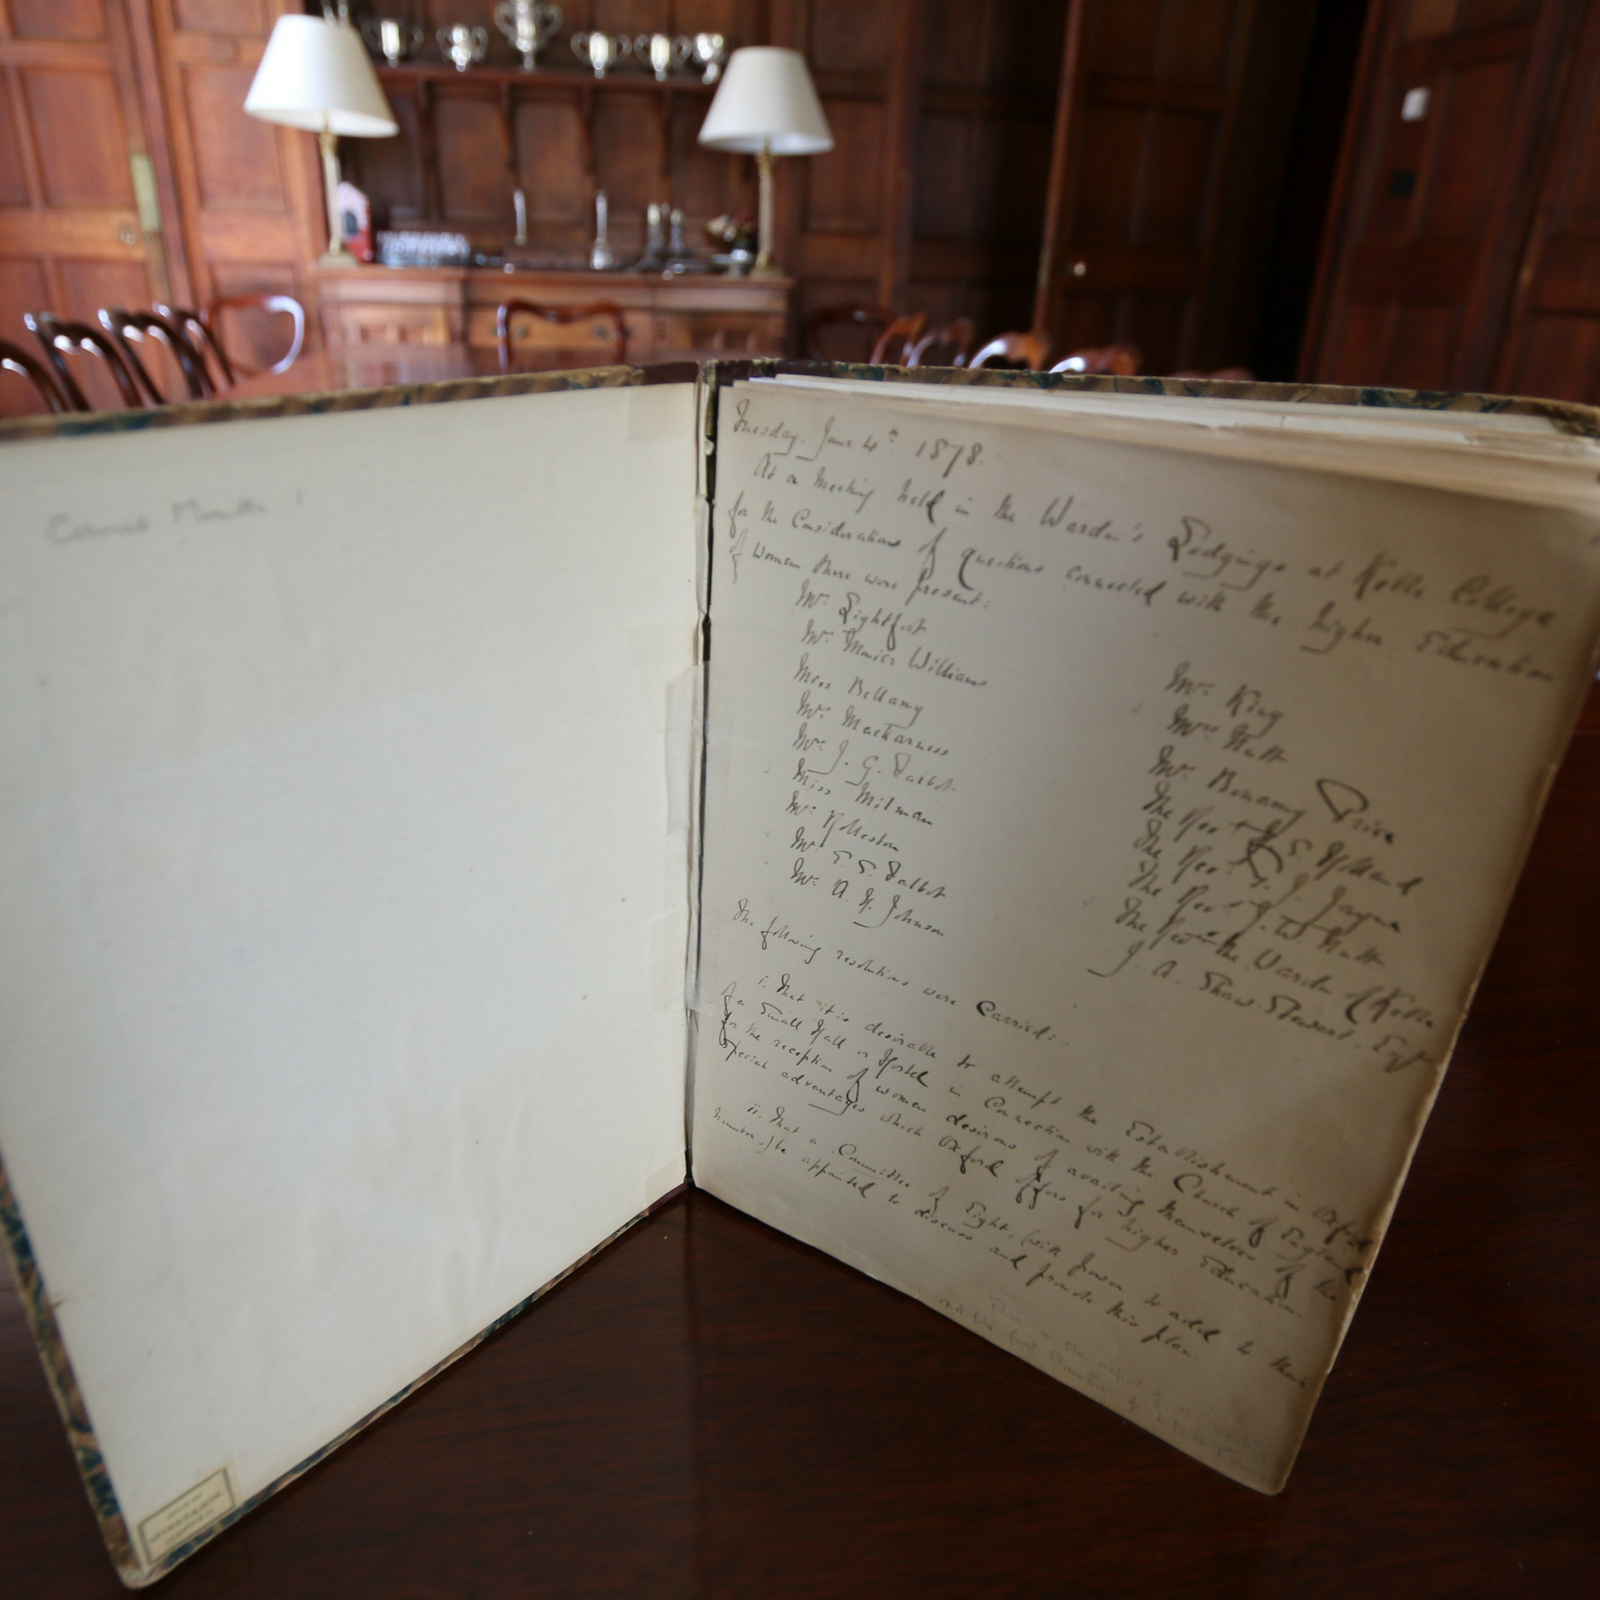 Tuesday. June 4th 1878.
At a meeting held in the Warden's Lodgings at Keble College
for the Consideration of questions connected with the higher Education
of Women there were present:
Mrs Lightfoot
Mrs Monier Williams
Miss Bellamy
Mrs Mackarness
Mrs J. G. Talbot
Miss Milman
Mrs Rolleston
Mrs E. S. Talbot
Mrs A. H. Johnson
Mrs King
Mrs Nutt
Mr Bonamy Price
The Revd H. S. Holland
The Revd F. J. Jayne
The Revd J. W. Nutt
The Revd the Warden of Keble
J. A. Shaw Stewart. Esqr
The following resolutions were Carried:-
i. That it is desirable to attempt the Establishment in Oxford
of a Small Hall or Hostel in Connection with the Church of England
for the reception of women desirous of availing themselves of the
special advantages which Oxford offers for higher Education.
ii. That a Committee of Eight, (with power to add to their
number,) be appointed to discuss and promote this plan.